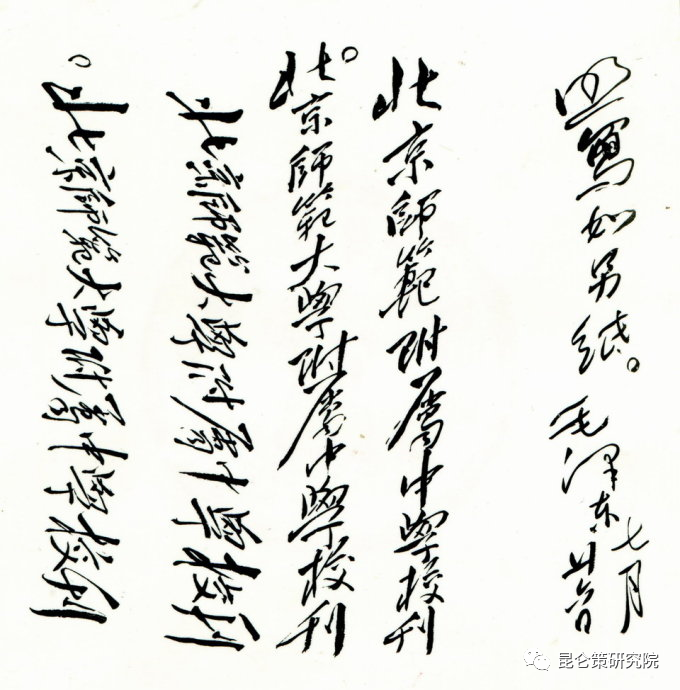 照寫如另紙。
毛澤东
七月
廿六日
北京師範附屬中學校刊
○北京師範大學附屬中學校刊
北京師範大學附屬中學校刊
○北京師範大學附屬中學校刊
昆仑策研究院